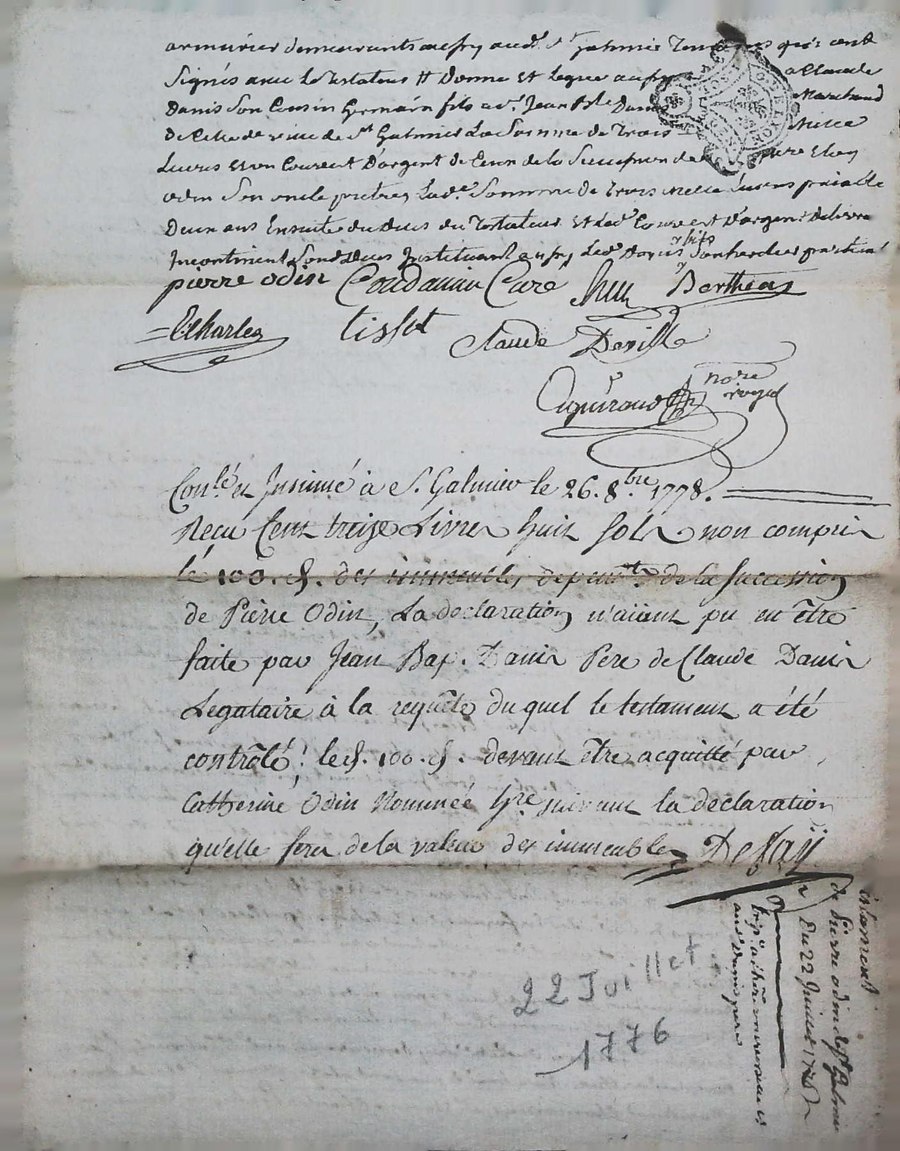 armurier demeurants au fry aud. St Galmier
signés avec le testateur # Donne et legue au fry a Claude
Danis son Cousin Germain fils a sr. Jean Bte Danis Marchand
de cette de ville de St Galmier La Somme de Trois Mille
Livres et un Couvert D'argent de la Succession de
odin son oncle pretre, Lade. Somme de Trois mille Livres paiable
Deux ans Ensuite du deces du Testateur Et led. Couvert D'argent delivré
Incontinent sond. deces Instituant au fry led. Danis son heritier particul
pierre odin Coudanin Cure Berthéas
Charles tissot Claude Deville
nore royal
Conlé et Insinué à St. Galmier le 26. 8bre 1778.
Recu Cent treize Livres huit sols non compris
le 100e. d. des immeubles depts de la succession
de Pierre Odin, La declaration n'aiant pu en être
faite par Jean Bap. Danis Pere de Claude Danis
Legataire à la requête du quel le testament a été
contrôlé; led. 100e. d. devant être acquitté par
Catherine Odin Nommée hre. suivant la declaration
qu'elle fera de la valeur des immeubles Defaÿ
testament
de Pierre odin de St Galmier
Du 22 Juillet 1776
22 Juillet
1776